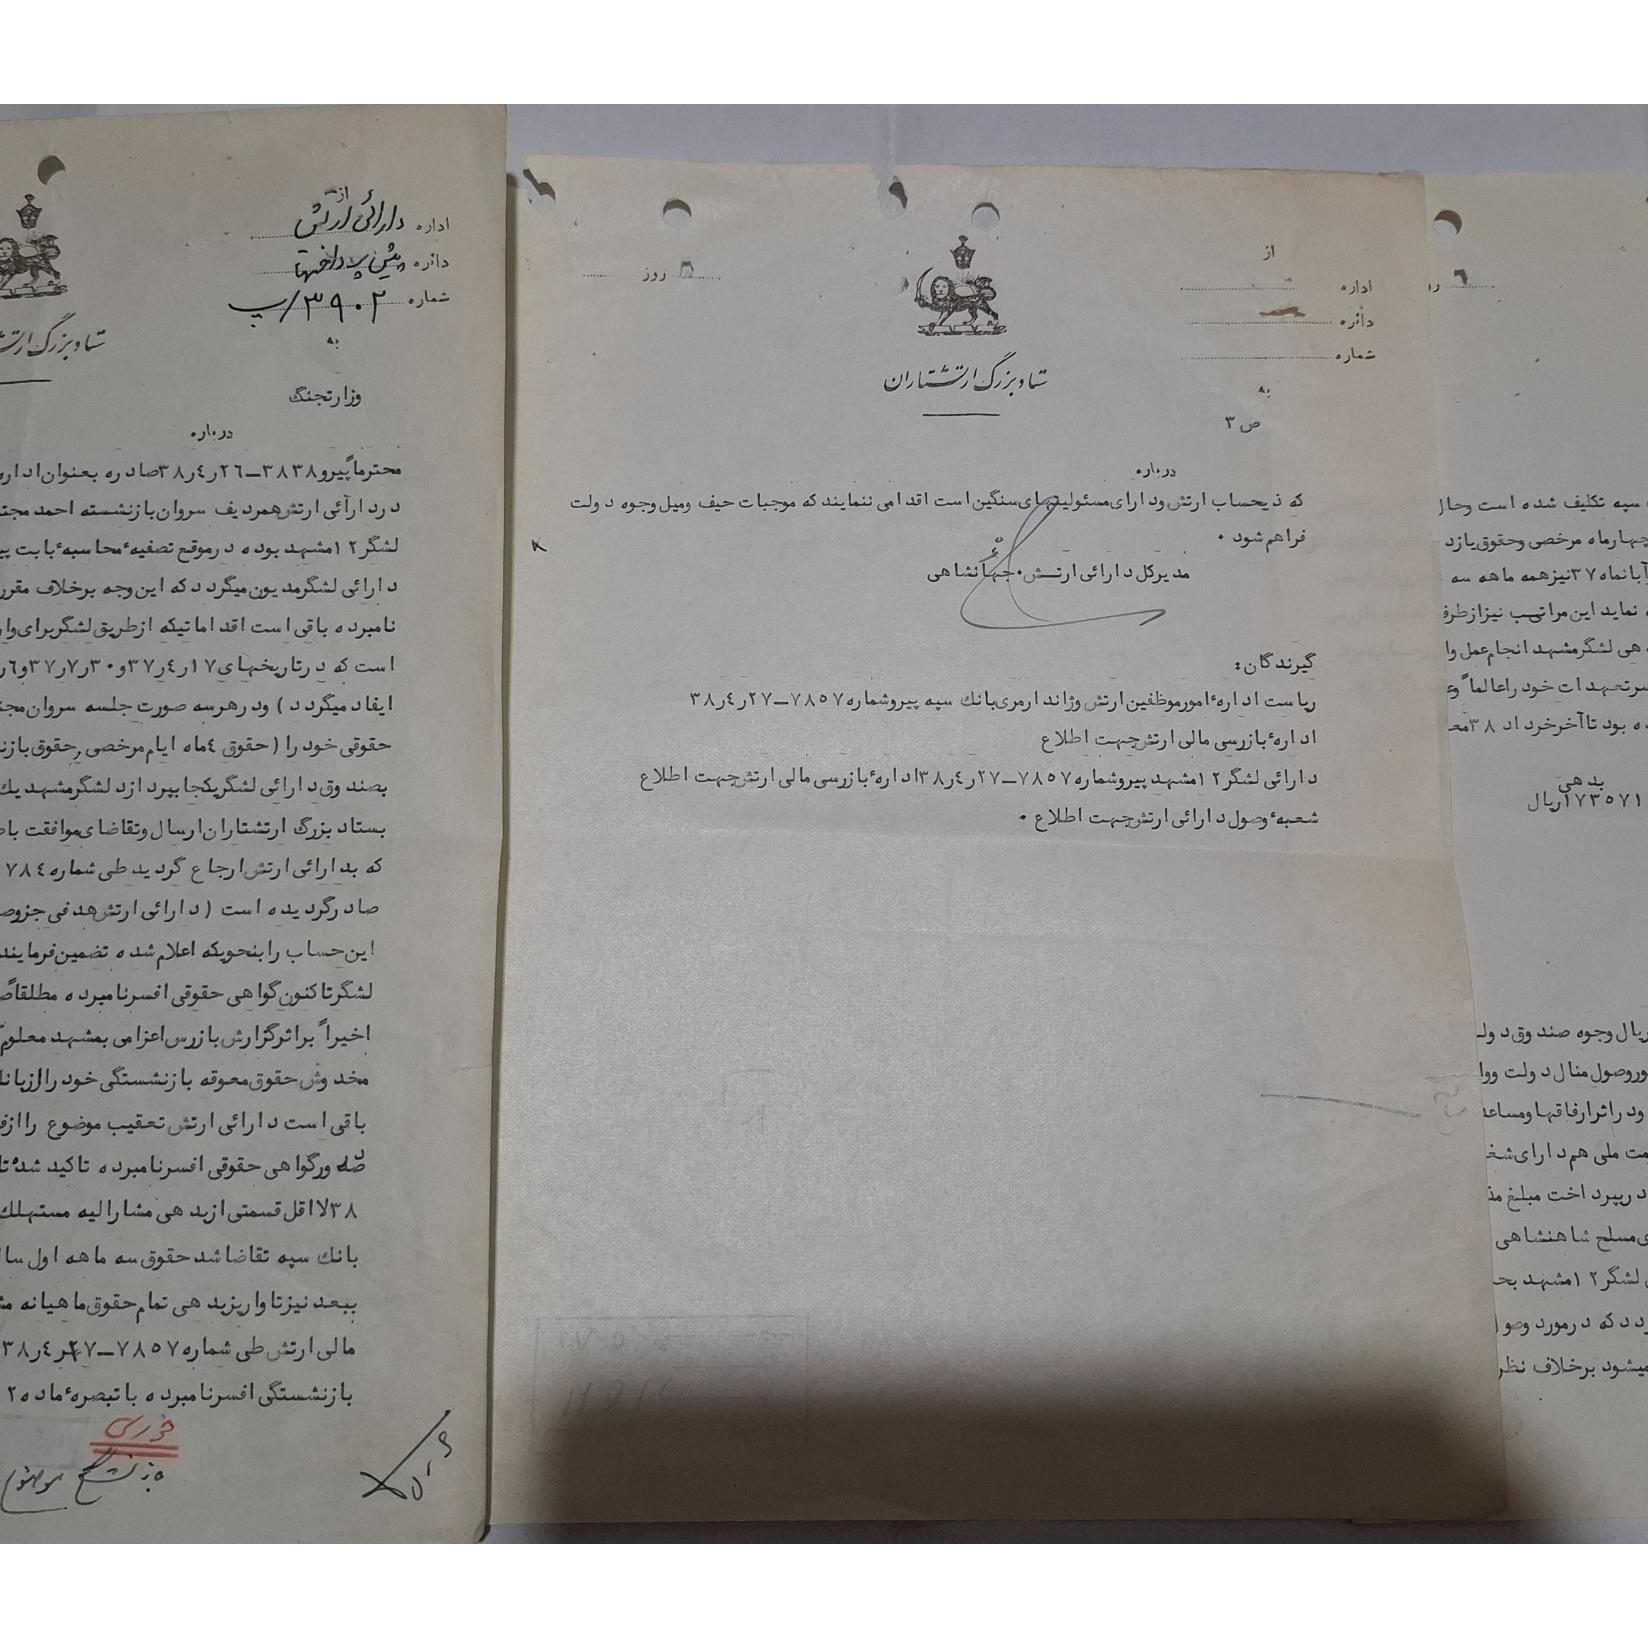 از
اداره دارائی ارتش
دائره پیش پرداختها
شماره ۳۹۰۲/پ
به
ستاد بزرگ ارتشتاران
وزارتجنگ
درباره
محترماً پیرو ۳۸۳۸ـ۲٦ر٤ر۳۸ صادره بعنوان اداره
در دارائی ارتش همردیف سروان بازنشسته احمد
لشگر ۱۲ مشهد بوده درموقع تصفیهٔ محاسبهٔ بابت
دارائی لشگر مدیون میگردد که این وجه برخلاف
نامبرده باقی است اقداماتیکه ازطریق لشگر برای
است که درتاریخهای ۱۷ر٤ر۳۷ و ۳۰ر۷ر۳۷ و
ایفاد میگردد ) ودرهرسه صورت جلسه سروان
حقوقی خود را ( حقوق ٤ماه ایام مرخصی ,حقوق
بصندوق دارائی لشگر یکجا بپردازد لشگر مشهد یك
بستاد بزرگ ارتشتاران ارسال وتقاضای موافقت
که بدارائی ارتش ارجاع گردید طی شماره ۷۸٤
صادرگردیده است ( دارائی ارتش هدفی جز
این حساب را بنحویکه اعلام شده تضمین فرمایند
لشگر تاکنون گواهی حقوقی افسرنامبرده مطلقاً
اخیراً براثر گزارش بازرس اعزامی بمشهد معلوم
مخدوش حقوق معوقه بازنشستگی خود را از
باقی است دارائی ارتش تعقیب موضوع را
صدور گواهی حقوقی افسرنامبرده تاکید شده
۳۸ لااقل قسمتی ازبدهی مشارالیه مستهلك
بانك سپه تقاضا شد حقوق سه ماهه اول
ببعد نیز تا واریز بدهی تمام حقوق ماهیانه
مالی ارتش طی شماره ۷۸٥۷ـ۲۷ر٤ر۳۸
بازنشستگی افسرنامبرده با تبصرهٔ ماده ۲
فوری
روز
از
اداره
دائره
شماره
به
ستاد بزرگ ارتشتاران
ص ۳
درباره
که ذیحساب ارتش ودارای مسئولیتهای سنگین است اقدامی ننمایند که موجبات حیف ومیل وجوه دولت
فراهم شود ۰
مدیرکل دارائی ارتش۰جهانشاهی
گیرندگان:
ریاست ادارهٔ امورموظفین ارتش وژاندارمری بانك سپه پیروشماره ۷۸٥۷ـ۲۷ر٤ر۳۸
ادارهٔ بازرسی مالی ارتش جهت اطلاع
دارائی لشگر ۱۲ مشهد پیروشماره ۷۸٥۷ـ۲۷ر٤ر۳۸ ادارهٔ بازرسی مالی ارتش جهت اطلاع
شعبهٔ وصول دارائی ارتش جهت اطلاع ۰
سپه تکلیف شده است وحال
چهارماه مرخصی وحقوق
آبانماه ۳۷ نیز همه ماهه سه
نماید این مراتب نیز ازطرف
لشگر مشهد انجام عمل
تعهدات خود را عالماً
بود تا آخر خرداد ۳۸
بدهی
۱۷۳٥۷۱ ریال
ریال وجوه صندوق
وصول منال دولت
ودراثر ارفاقها
ملی هم دارای
درپرداخت مبلغ
مسلح شاهنشاهی
لشگر ۱۲ مشهد
که درمورد
میشود برخلاف نظر